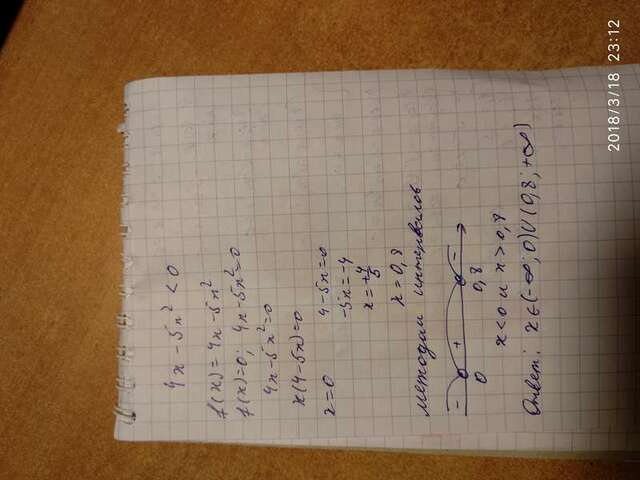 4x - 5x² < 0
f(x) = 4x - 5x²
f(x)=0; 4x-5x²=0
4x-5x²=0
x(4-5x)=0
x=0 4-5x=0
-5x=-4
x=+4/5
x=0,8
методом интервалов
- + -
0 0,8
x<0 и x>0,8
Ответ: x∈(-∞; 0)∪(0,8; +∞)
2018/3/18 23:12